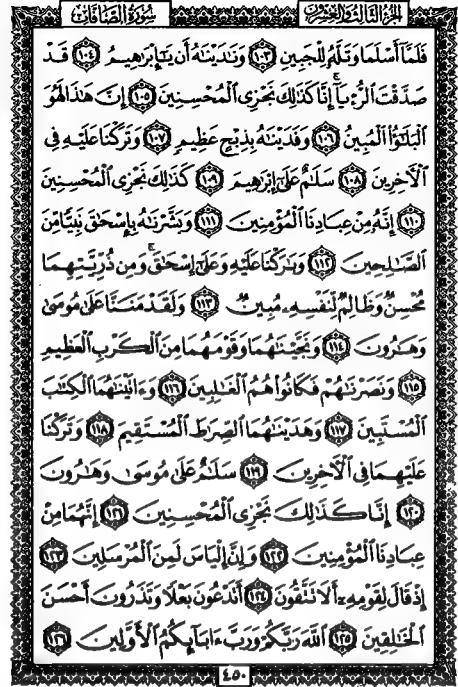 الجزء الثالث والعشرون سورة الصافات
فَلَمَّا أَسْلَمَا وَتَلَّهُ لِلْجَبِينِ ١٠٣ وَنَٰدَيْنَٰهُ أَن يَٰٓإِبْرَٰهِيمُ ١٠٤ قَدْ
صَدَّقْتَ ٱلرُّءْيَآ ۚ إِنَّا كَذَٰلِكَ نَجْزِى ٱلْمُحْسِنِينَ ١٠٥ إِنَّ هَٰذَا لَهُوَ
ٱلْبَلَٰٓؤُا۟ ٱلْمُبِينُ ١٠٦ وَفَدَيْنَٰهُ بِذِبْحٍ عَظِيمٍ ١٠٧ وَتَرَكْنَا عَلَيْهِ فِى
ٱلْءَاخِرِينَ ١٠٨ سَلَٰمٌ عَلَىٰٓ إِبْرَٰهِيمَ ١٠٩ كَذَٰلِكَ نَجْزِى ٱلْمُحْسِنِينَ
١١٠ إِنَّهُۥ مِنْ عِبَادِنَا ٱلْمُؤْمِنِينَ ١١١ وَبَشَّرْنَٰهُ بِإِسْحَٰقَ نَبِيًّا مِّنَ
ٱلصَّٰلِحِينَ ١١٢ وَبَٰرَكْنَا عَلَيْهِ وَعَلَىٰٓ إِسْحَٰقَ ۚ وَمِن ذُرِّيَّتِهِمَا
مُحْسِنٌ وَظَالِمٌ لِّنَفْسِهِۦ مُبِينٌ ١١٣ وَلَقَدْ مَنَنَّا عَلَىٰ مُوسَىٰ
وَهَٰرُونَ ١١٤ وَنَجَّيْنَٰهُمَا وَقَوْمَهُمَا مِنَ ٱلْكَرْبِ ٱلْعَظِيمِ
١١٥ وَنَصَرْنَٰهُمْ فَكَانُوا۟ هُمُ ٱلْغَٰلِبِينَ ١١٦ وَءَاتَيْنَٰهُمَا ٱلْكِتَٰبَ
ٱلْمُسْتَبِينَ ١١٧ وَهَدَيْنَٰهُمَا ٱلصِّرَٰطَ ٱلْمُسْتَقِيمَ ١١٨ وَتَرَكْنَا
عَلَيْهِمَا فِى ٱلْءَاخِرِينَ ١١٩ سَلَٰمٌ عَلَىٰ مُوسَىٰ وَهَٰرُونَ
١٢٠ إِنَّا كَذَٰلِكَ نَجْزِى ٱلْمُحْسِنِينَ ١٢١ إِنَّهُمَا مِنْ
عِبَادِنَا ٱلْمُؤْمِنِينَ ١٢٢ وَإِنَّ إِلْيَاسَ لَمِنَ ٱلْمُرْسَلِينَ ١٢٣
إِذْ قَالَ لِقَوْمِهِۦٓ أَلَا تَتَّقُونَ ١٢٤ أَتَدْعُونَ بَعْلًا وَتَذَرُونَ أَحْسَنَ
ٱلْخَٰلِقِينَ ١٢٥ ٱللَّهَ رَبَّكُمْ وَرَبَّ ءَابَآئِكُمُ ٱلْأَوَّلِينَ ١٢٦
٤٥٠